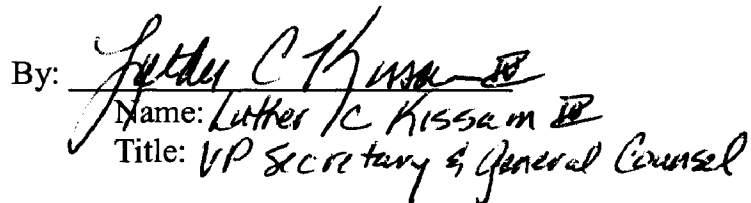 By: Luther C Kissam IV
Name: Luther C Kissam IV
Title: VP Secretary & General Counsel